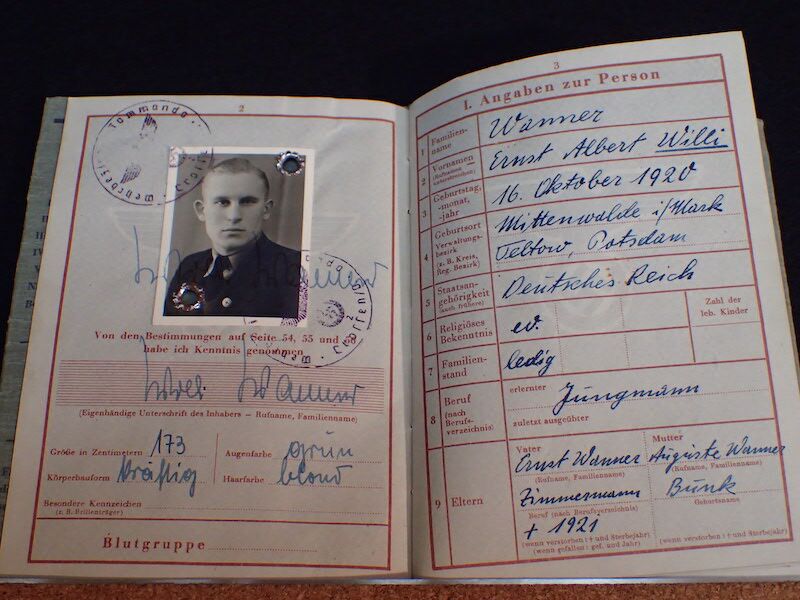 2
Kommando
Von den Bestimmungen auf Seite 54, 55 und
habe ich Kenntnis genommen
Wanner
(Eigenhändige Unterschrift des Inhabers – Rufname, Familienname)
Größe in Zentimetern 173 Augenfarbe grün
Körperbauform kräftig Haarfarbe blond
Besondere Kennzeichen
(z. B. Brillenträger)
Blutgruppe
3
I. Angaben zur Person
1 Familien-
name
Wanner
2 Vornamen
(Rufnamen
unterstreichen)
Ernst Albert Willi
3 Geburtstag,
-monat,
-jahr
16. Oktober 1920
4 Geburtsort
Verwaltungs-
bezirk
(z. B. Kreis,
Reg. Bezirk)
Mittenwalde i/Mark
Teltow, Potsdam
5 Staatsan-
gehörigkeit
(auch frühere)
Deutsches Reich
6 Religiöses
Bekenntnis
ev.
Zahl der
leb. Kinder
7 Familien-
stand
ledig
8 Beruf
(nach
Berufs-
verzeichnis)
erlernter
Jungmann
zuletzt ausgeübter
9 Eltern
Vater Mutter
Ernst Wanner Auguste Wanner
(Rufname, Familienname) (Rufname, Familienname)
Zimmermann Bunk
Beruf (nach Berufsverzeichnis) Geburtsname
† 1921
(wenn verstorben: † und Sterbejahr) (wenn verstorben: † und Sterbejahr)
(wenn gefallen: gef. und Jahr)